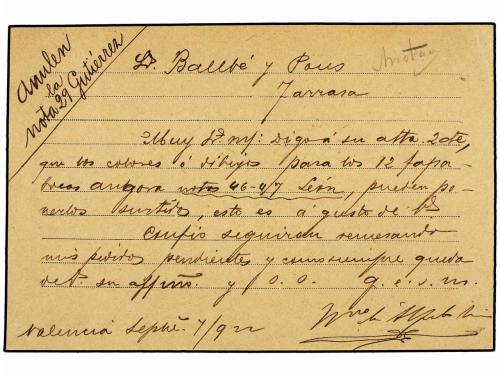 anulen
la
nota 29 Gutiérrez
Sr. Balbé y Pous
Tarrasa
Muy Sr. mío: digo á su atta. 2 cte,
que los colores ó dibujos para los 12 tapa-
bocas angora notas 46-47 León, pueden po-
nerlos surtidos, esto es á gusto de Vd
Confío seguirán remesando
mis pedidos pendientes y como siempre queda
de V. su affmo. y S. S. q. e. s. m.
Valencia Septbe. 7/922